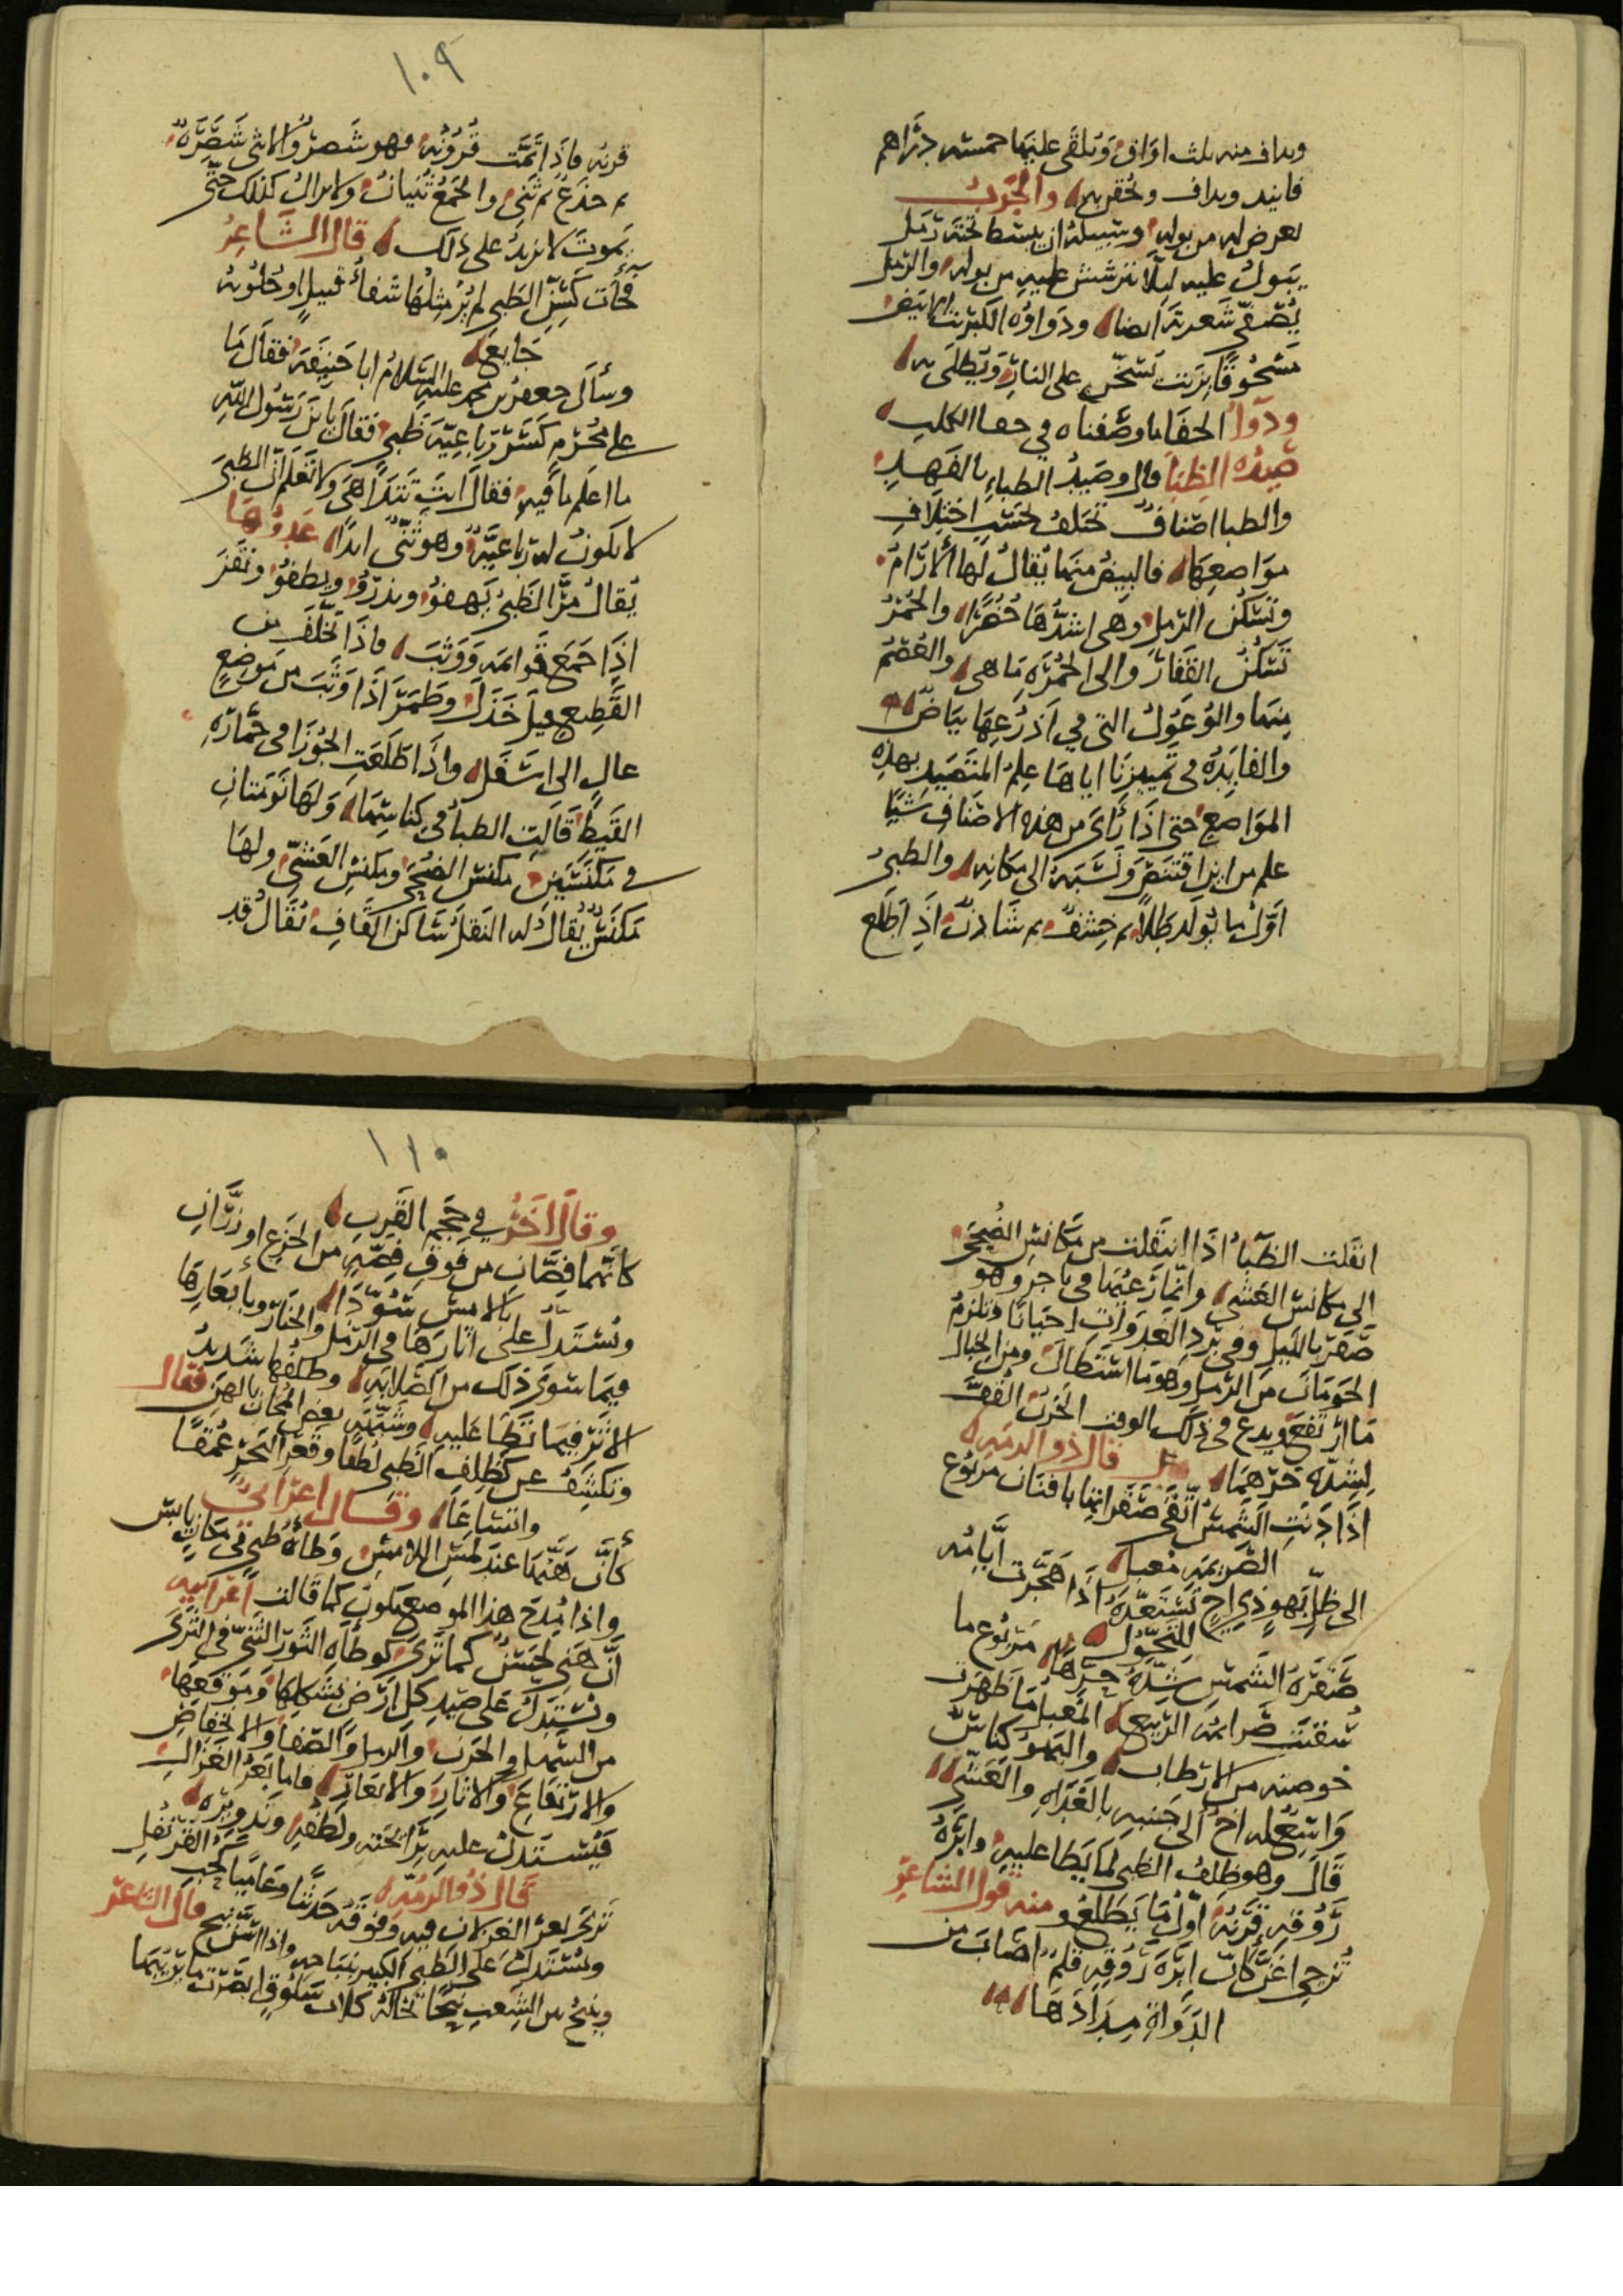 ويداف منه ثلث اواق ويلقى عليها خمسه دراهم
فانيد ويداف ويحقن به والجرب
يعرض له من بوله وسبيله ان يبسط تحته رمل
يبول عليه ليلا يترشش عليه من بوله والرمل
يصفي شعرته ايضا ودواؤه الكبريت الابيض
مسحوقا بزيت تسخن على النار ويطلى به
ودوا الحفا ما وصفناه في حفا الكلب
صيده الظبا قال وصيد الظباء بالفهد
والظبا اصناف تختلف بحسب اختلاف
مواضعها فالبيض منها يقال لها الارام
وتسكن الرمل وهي اشدها حضرا والحمر
تسكن القفاف والى الحمره ما هي والعصم
منها والوعول التي في اذرعها بياض
والفايده في تمييزنا اياها علم المتصيد بهذه
المواضع حتى اذا راى من هذه الاصناف شيا
علم من اين اقتنص ونسبه الى مكانه والظبي
اول ما يولد طلا ثم خشف ثم شادن اذا طلع
١٠٩
قرنه فاذا تمت قرونه فهو شصر والانثى شصره
ثم جذع ثم ثني والجمع ثنيان ولا يزال كذلك حتى
يموت لا يزيد على ذلك قال الشاعر
فجات كسن الظبي لم ير مثلها شفاء قتيل او حلوبه
جايع
وسأل جعفر بن محمد عليه السلام ابا حنيفة فقال ما
على محرم كسر رباعية ظبي فقال يا بن رسول الله
ما اعلم ما فيه فقال انت تتداهى ولا تعلم ان الظبي
لا يكون له رباعيه وهو ثني ابدا عدوها
يقال مر الظبي يهفو ويذرو ويطفو ونقز
اذا جمع قوايمه ووثب واذا تخلف من
القطيع قيل خذل وطمر اذا وثب من موضع
عال الى اسفل واذا طلعت الجوزا في حماره
القيظ قالت الظبا في كناسها ولها نومتان
في مكنسين مكنس الضحى ومكنس العشي ولها
مكنس يقال له النقل ساكن القاف يقال قد
انقلت الظبا اذا انتقلت من مكانس الضحى
الى مكانس العشي وانما رعيها في ناجر وهو
صفر بالليل وفي برد الغدوات احيانا وتلزم
الحومان من الرمل وهو ما استطال ومن الجبال
ما ارتفع ويدع في ذلك الوقت الحزن القف
لشده حرهما قال ذو الرمه
اذا ذابت الشمس اتقى صقراتها بافنان مربوع
الصريمه معبل
الى ظل بهو ذي اخ تستعده اذا هجرت ايامه
للتحول
صقره الشمس شده حرها مربوع ما
سقت صرايمه الربيع المعبل ما ظهرت
خوصته من الارطاب والبهو كناس
واسع له اخ الى جنبه بالغداه والعشي
قال وهو ظلف الظبي لما يطا عليه وابره
روقه قرنه اول ما يطلع ومنه قول الشاعر
تزجي اغن كان ابره روقه قلم اصاب من
الدواة مدادها
١١٠
وقال اخر في حجم القرب
كانما فصان من فوق فصه من الجزع او زران
بالامس سودا
ويستدل على اثارها في الرمل والخبار وبابعارها
فيما سوى ذلك من الصلابه وظلفها شديد
الاثر فيما تطا عليه وشبه بعض المجان بالهن فقال
وتكشف عن كظلف الظبي لطفا وقعر البحر عمقا
واتساعا وقال اعرابي
كأن هنها عند لمس اللامس وطاه ظبي في مكان يابس
واذا مدح هذا الموضع يكون كما قالت اعرابيه
ان هني لحسن كما ترى كوطاه الثور الثني في الثرى
ويستدل على صيد كل ارض بشكلها وموقعها
من السهل والحزن والرمل والصفا والانخفاض
والارتفاع والاثار والابعار فاما بعر الغزال
فيستدل عليه برائحته ولطفه وتدويره
قال ذو الرمه
ترى بعر الغزلان فيه وفوقه حديثا وعاميا كحب القرنفل
ويستدل على الظبي الكبير بنباحه واذا اسن نبح قال الشاعر
وينبح بين الشعب نبحا تخاله كلاب سلوق ابصرت ما يريبها